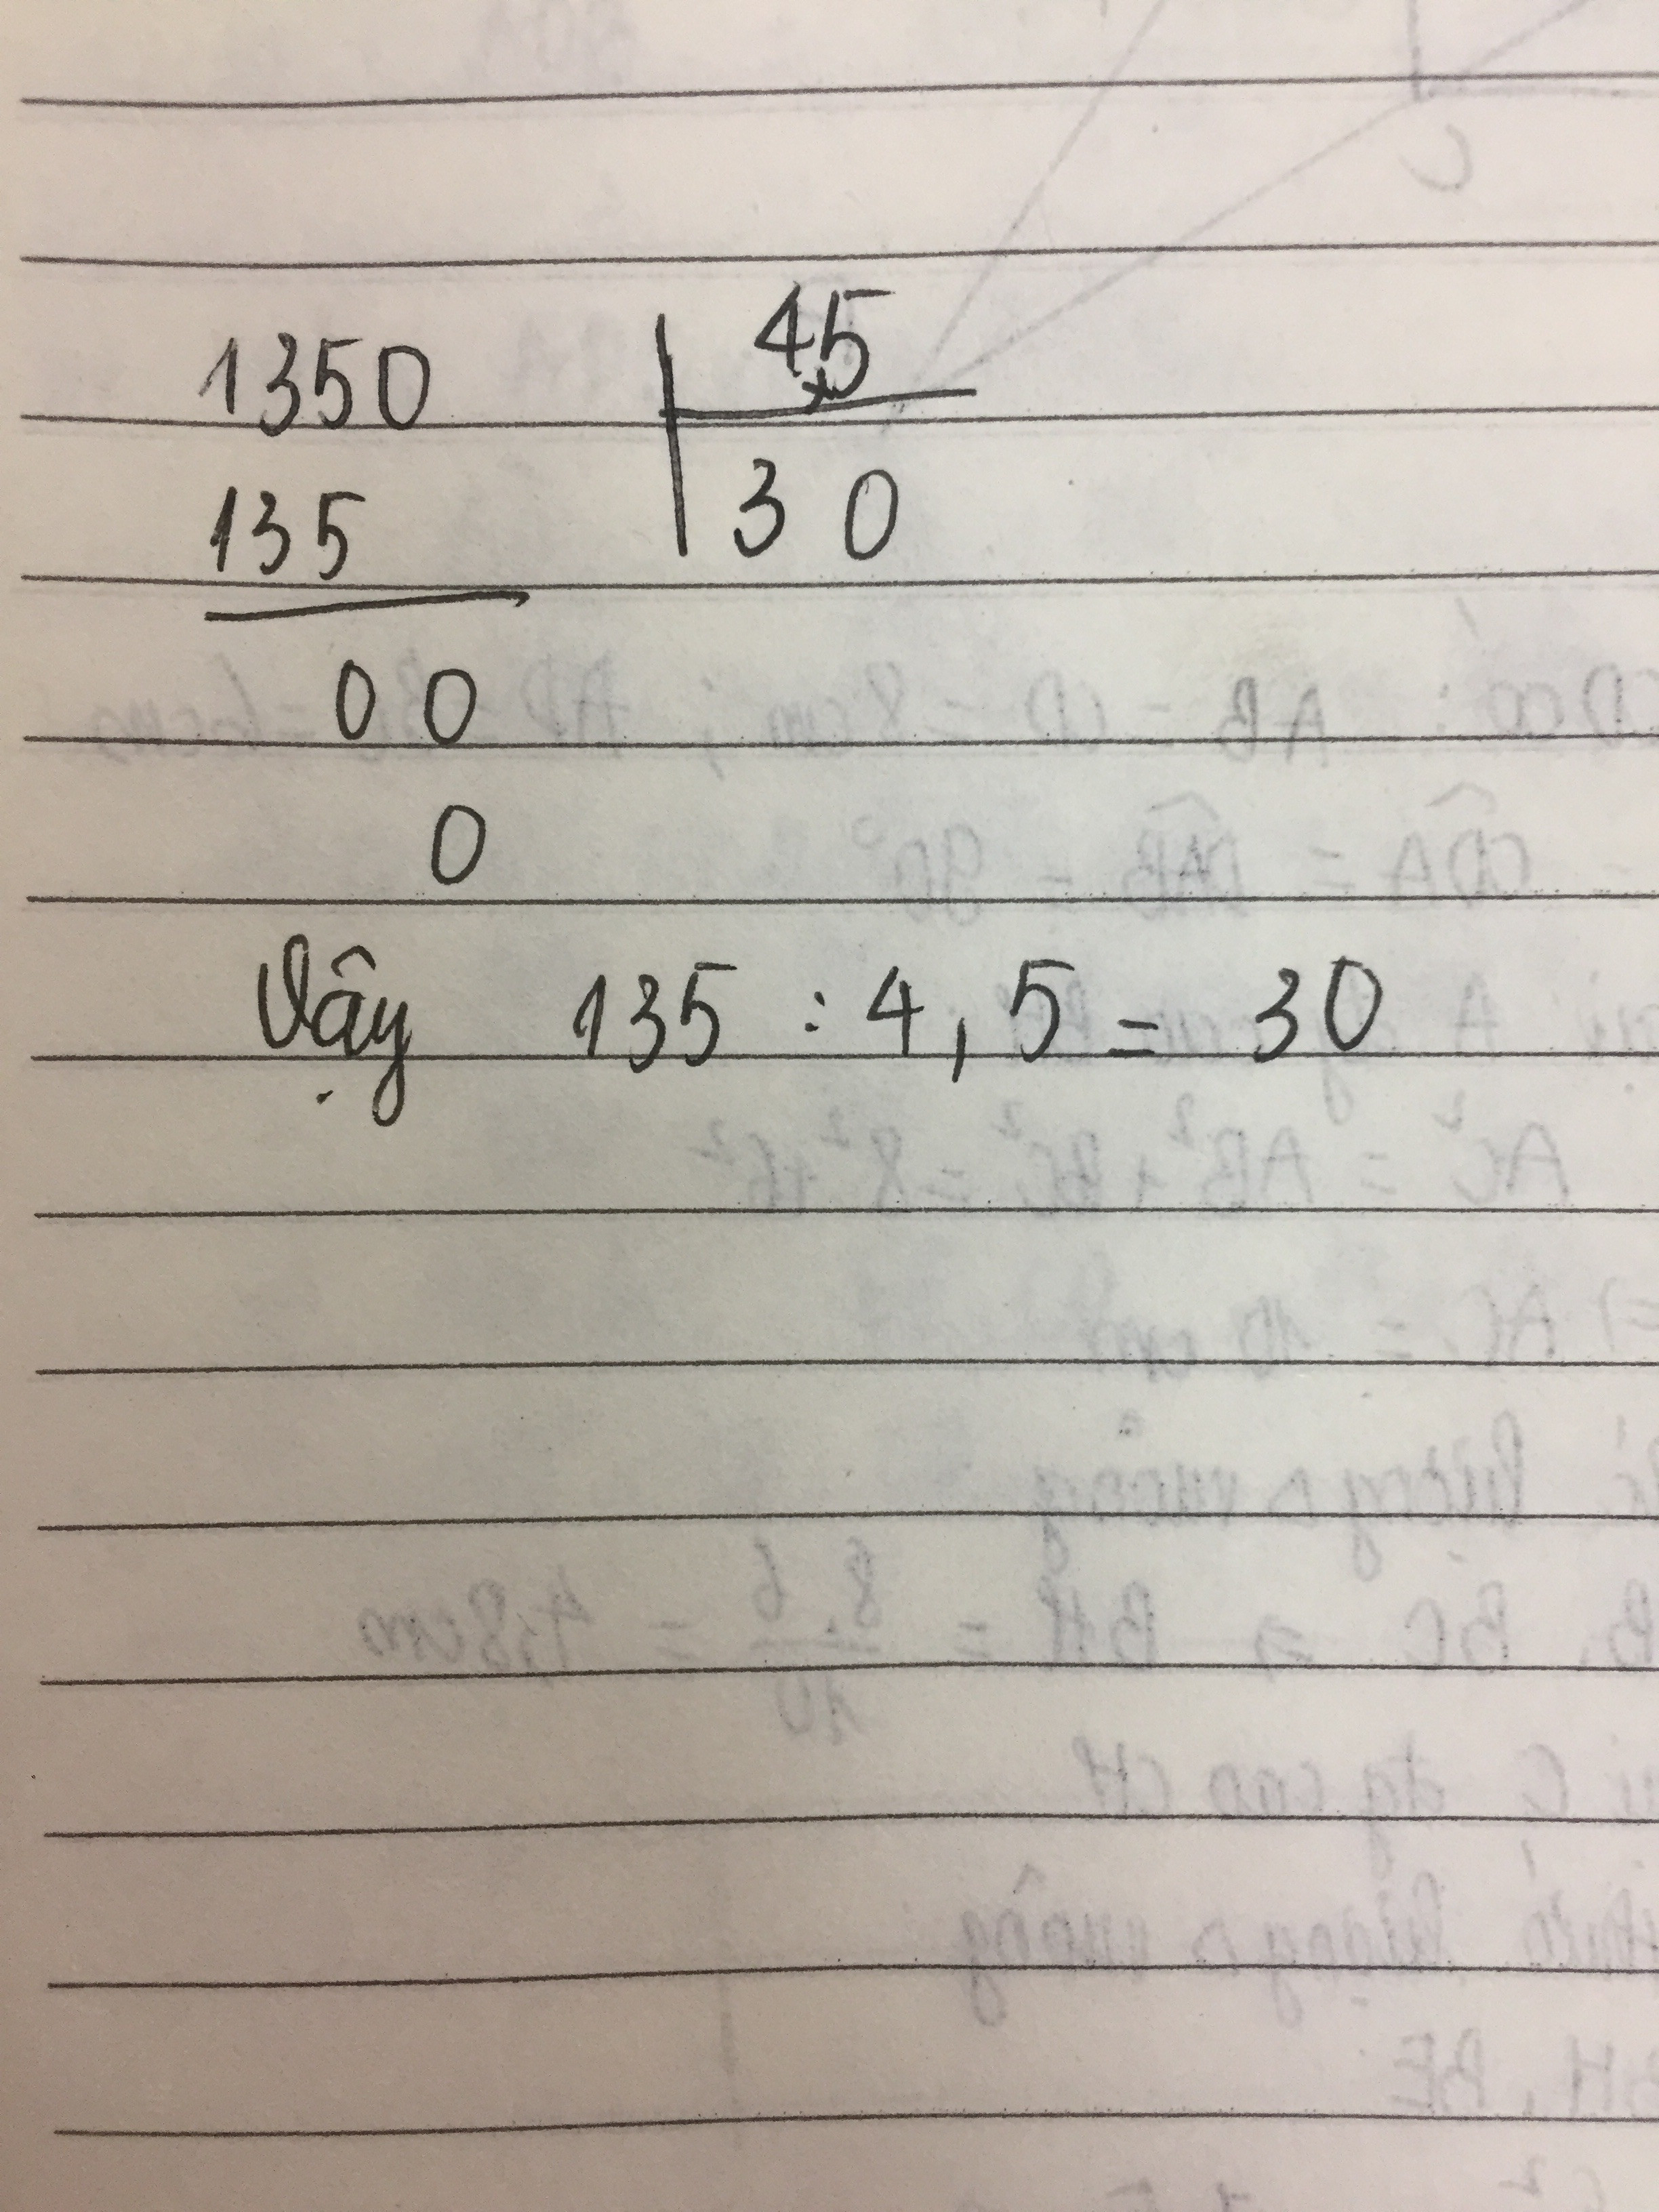 1350 4,5
135 30
00
0
Vậy 135 : 4,5 = 30